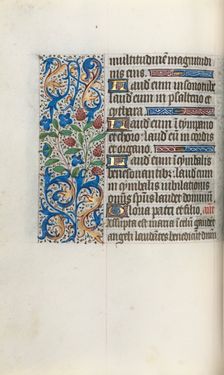 multitudinē magnitudi
nis eius.
Laudate eum in sono tube
laudate eum in psalterio et
cythara
Laudate eum ī tympano
et choro laudate eū in cordis
et organo.
Laudate eum ī cymbalis
benesonantibus laudate eum
in cymbalis iubilationis
omīs spūs laudet dominū.
Gloria patri et filio. an̄
Assumpta est maria ī celū gaudēt
angeli laudantes benedicunt dominū